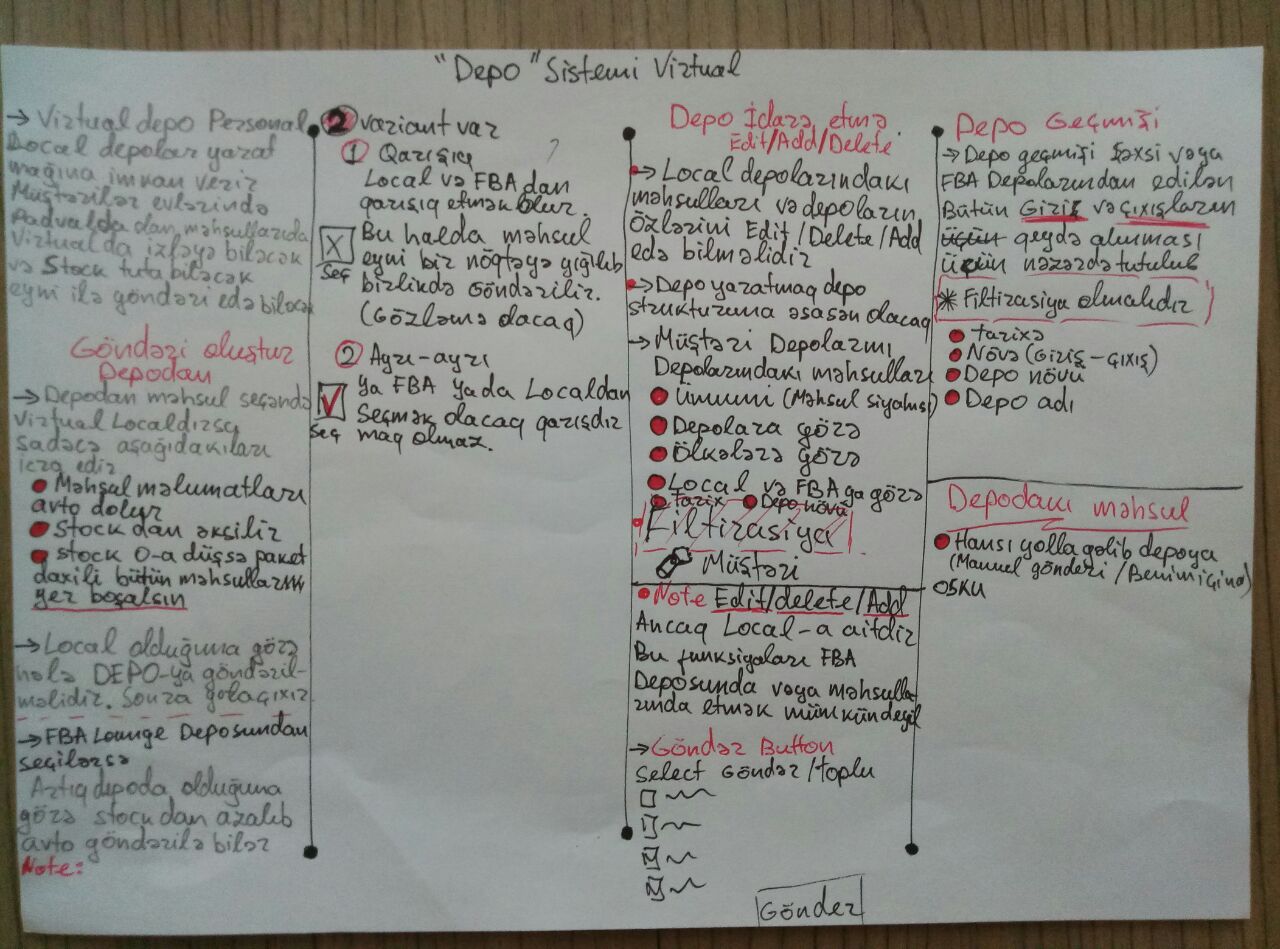 "Depo" Sistemi Virtual
→ Virtual depo Personal
Local depolar yarat
mağına imkan verir
Müştərilər evlərində
Padvalda dan məhsullarıda
Virtualda izləyə biləcək
və Stock tuta biləcək
eyni ilə göndəri edə biləcək
Göndəri oluştur
Depodan
→ Depodan məhsul seçəndə
Virtual Localdırsa
sadəcə aşağıdakıları
icra edir
Məhsul məlumatları
avto dolur
Stockdan əksilir
Stock 0-a düşsə paket
daxili bütün məhsulların
yer boşalsın
→ Local olduğuna görə
hələ DEPO-ya göndəril-
məlidir. Sonra yola çıxır
→ FBA Lounge Deposundan
seçilərsə
Artıq depoda olduğuna
görə stockdan azalıb
avto göndərilə bilər
Note:
2 variant var
① Qarışıq
?
Local və FBA dan
qarışıq etmək olur.
X Bu halda məhsul
eyni bir nöqtəyə yığılıb
Seç birlikdə Göndərilir.
(Gözləmə olacaq)
② Ayrı-ayrı
ya FBA yada Localdan
Seçmək olacaq qarışdır
Seç maq olmaz.
Depo İdarə etmə
Edit/Add/Delete
→ Local depolarındakı
məhsulları və depoların
özlərini Edit/Delete/Add
edə bilməlidir
→ Depo yaratmaq depo
strukturuna əsasən olacaq
→ Müştəri Depolarını
Depolarındakı məhsulları
Ümumi (Məhsul siyahısı)
Depolara görə
Ölkələrə görə
Local və FBA ya görə
Tarix Depo növü
Filtirasiya
Müştəri
Note Edit/delete/Add
Ancaq Local-a aitdir
Bu funksiyaları FBA
Deposunda vəya məhsulla-
rında etmək mümkün deyil
→ Göndər Button
Select Göndər/toplu
Göndər
Depo Geçmişi
→ Depo geçmişi Şəxsi vəya
FBA Depolarından edilən
Bütün Giriş və çıxışların
üçün qeydə alınması
üçün nəzərdə tutulub
* Filtirasiya olmalıdır
Tarixə
Növə (Giriş-çıxış)
Depo növü
Depo adı
Depodakı məhsul
Hansı yolla gəlib depoya
(Manuel gönderi/Benim için al)
OSKU